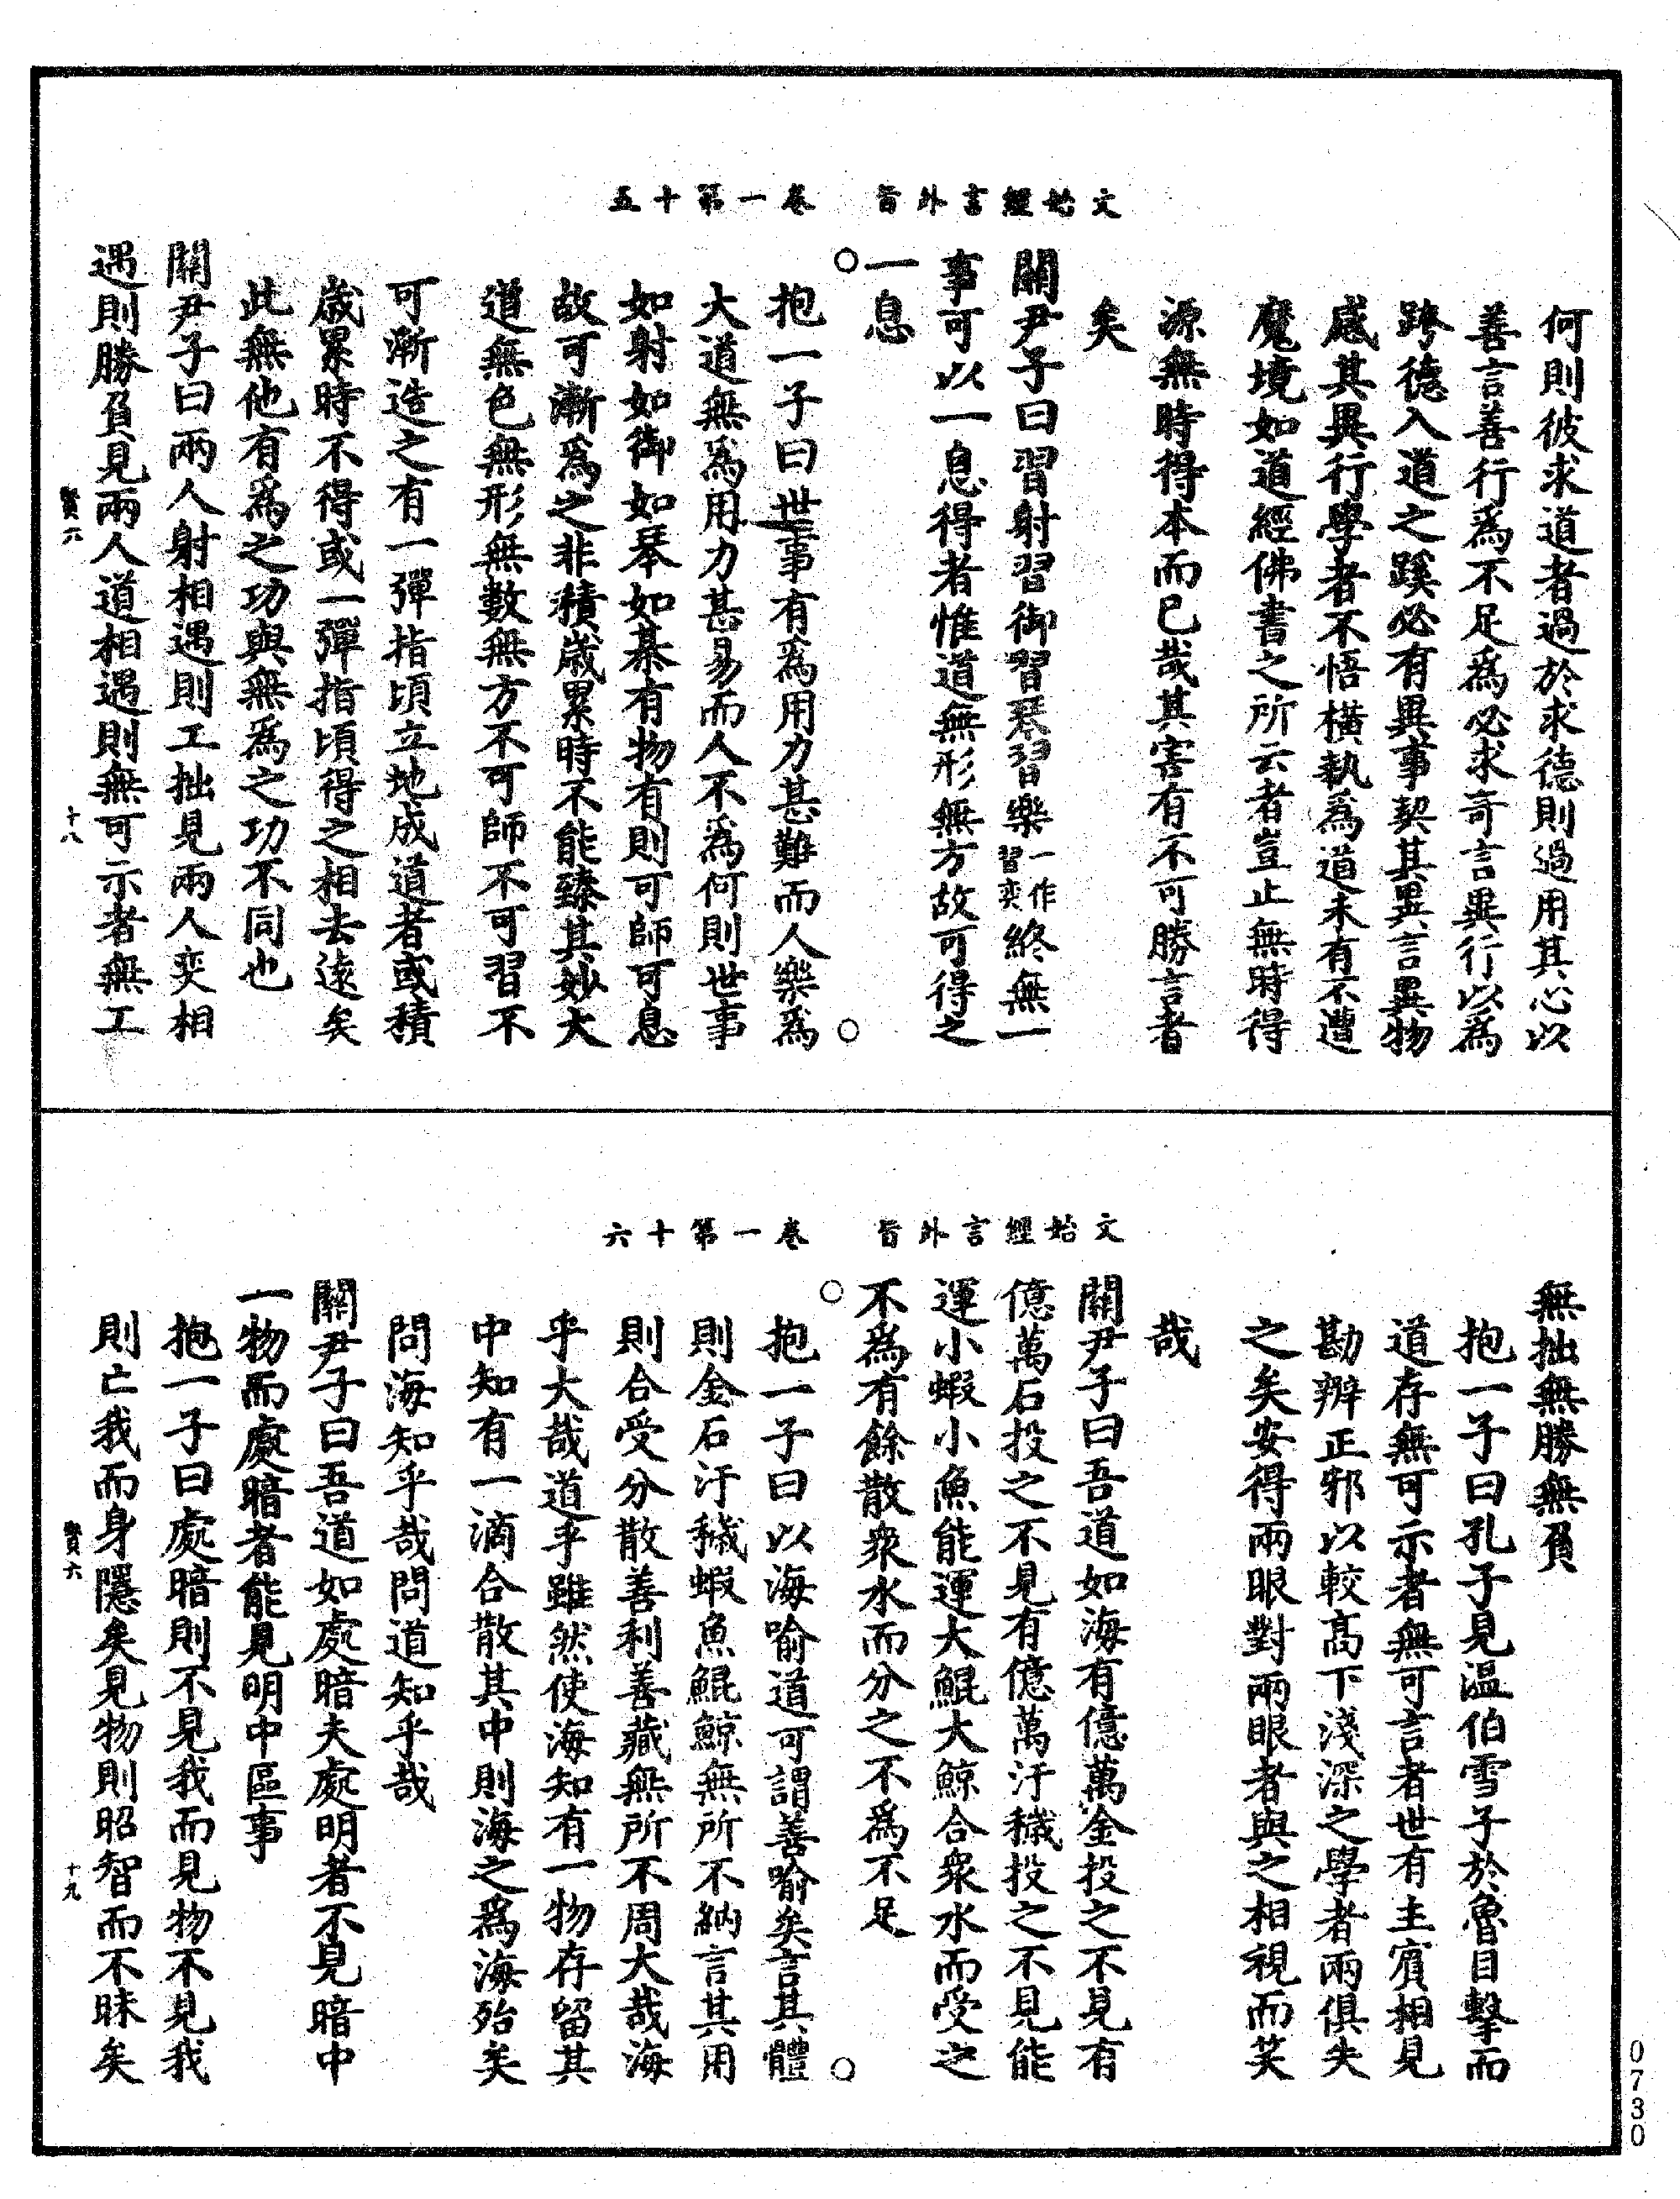 文始經言外旨　卷一第十五
何則彼求道者過於求德則過用其心以
善言善行爲不足爲必求奇言異行以爲
跨德入道之蹊必有異事契其異言異物
感其異行學者不悟橫執爲道未有不遭
魔境如道經佛書之所云者豈止無時得
源無時得本而已哉其害有不可勝言者
矣
關尹子曰習射習御習琴習樂一作習奕終無一
事可以一息得者惟道無形無方故可得之
一息
抱一子曰世事有爲用力甚難而人樂爲
大道無爲用力甚易而人不爲何則世事
如射如御如琴如棊有物有則可師可息
故可漸爲之非積歲累時不能臻其妙大
道無色無形無數無方不可師不可習不
可漸造之有一彈指頃立地成道者或積
歲累時不得或一彈指頃得之相去遠矣
此無他有爲之功與無爲之功不同也
關尹子曰兩人射相遇則工拙見兩人奕相
遇則勝負見兩人道相遇則無可示者無工
賢六　十八
文始經言外旨　卷一第十六
無拙無勝無負
抱一子曰孔子見溫伯雪子於魯目擊而
道存無可示者無可言者世有主賓相見
勘辨正邪以較高下淺深之學者兩俱失
之矣安得兩眼對兩眼者與之相視而笑
哉
關尹子曰吾道如海有億萬金投之不見有
億萬石投之不見有億萬汙穢投之不見能
運小蝦小魚能運大鯤大鯨合衆水而受之
不爲有餘散衆水而分之不爲不足
抱一子曰以海喻道可謂善喻矣言其體
則金石汙穢蝦魚鯤鯨無所不納言其用
則合受分散善利善藏無所不周大哉海
乎大哉道乎雖然使海知有一物存留其
中知有一滴合散其中則海之爲海殆矣
問海知乎哉問道知乎哉
關尹子曰吾道如處暗夫處明者不見暗中
一物而處暗者能見明中區事
抱一子曰處暗則不見我而見物不見我
則亡我而身隱矣見物則昭智而不昧矣
賢六　十九
0730